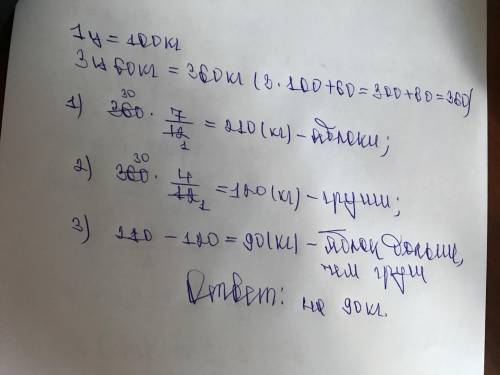 1ц = 100кг
3ц 60кг = 360кг (3·100+60=300+60=360)
1) 360 30 · 7/12 1 = 210 (кг) – яблоки;
2) 360 30 · 4/12 1 = 120 (кг) – груши;
3) 210 – 120 = 90 (кг) – яблок больше,
чем груш
Ответ: на 90 кг.